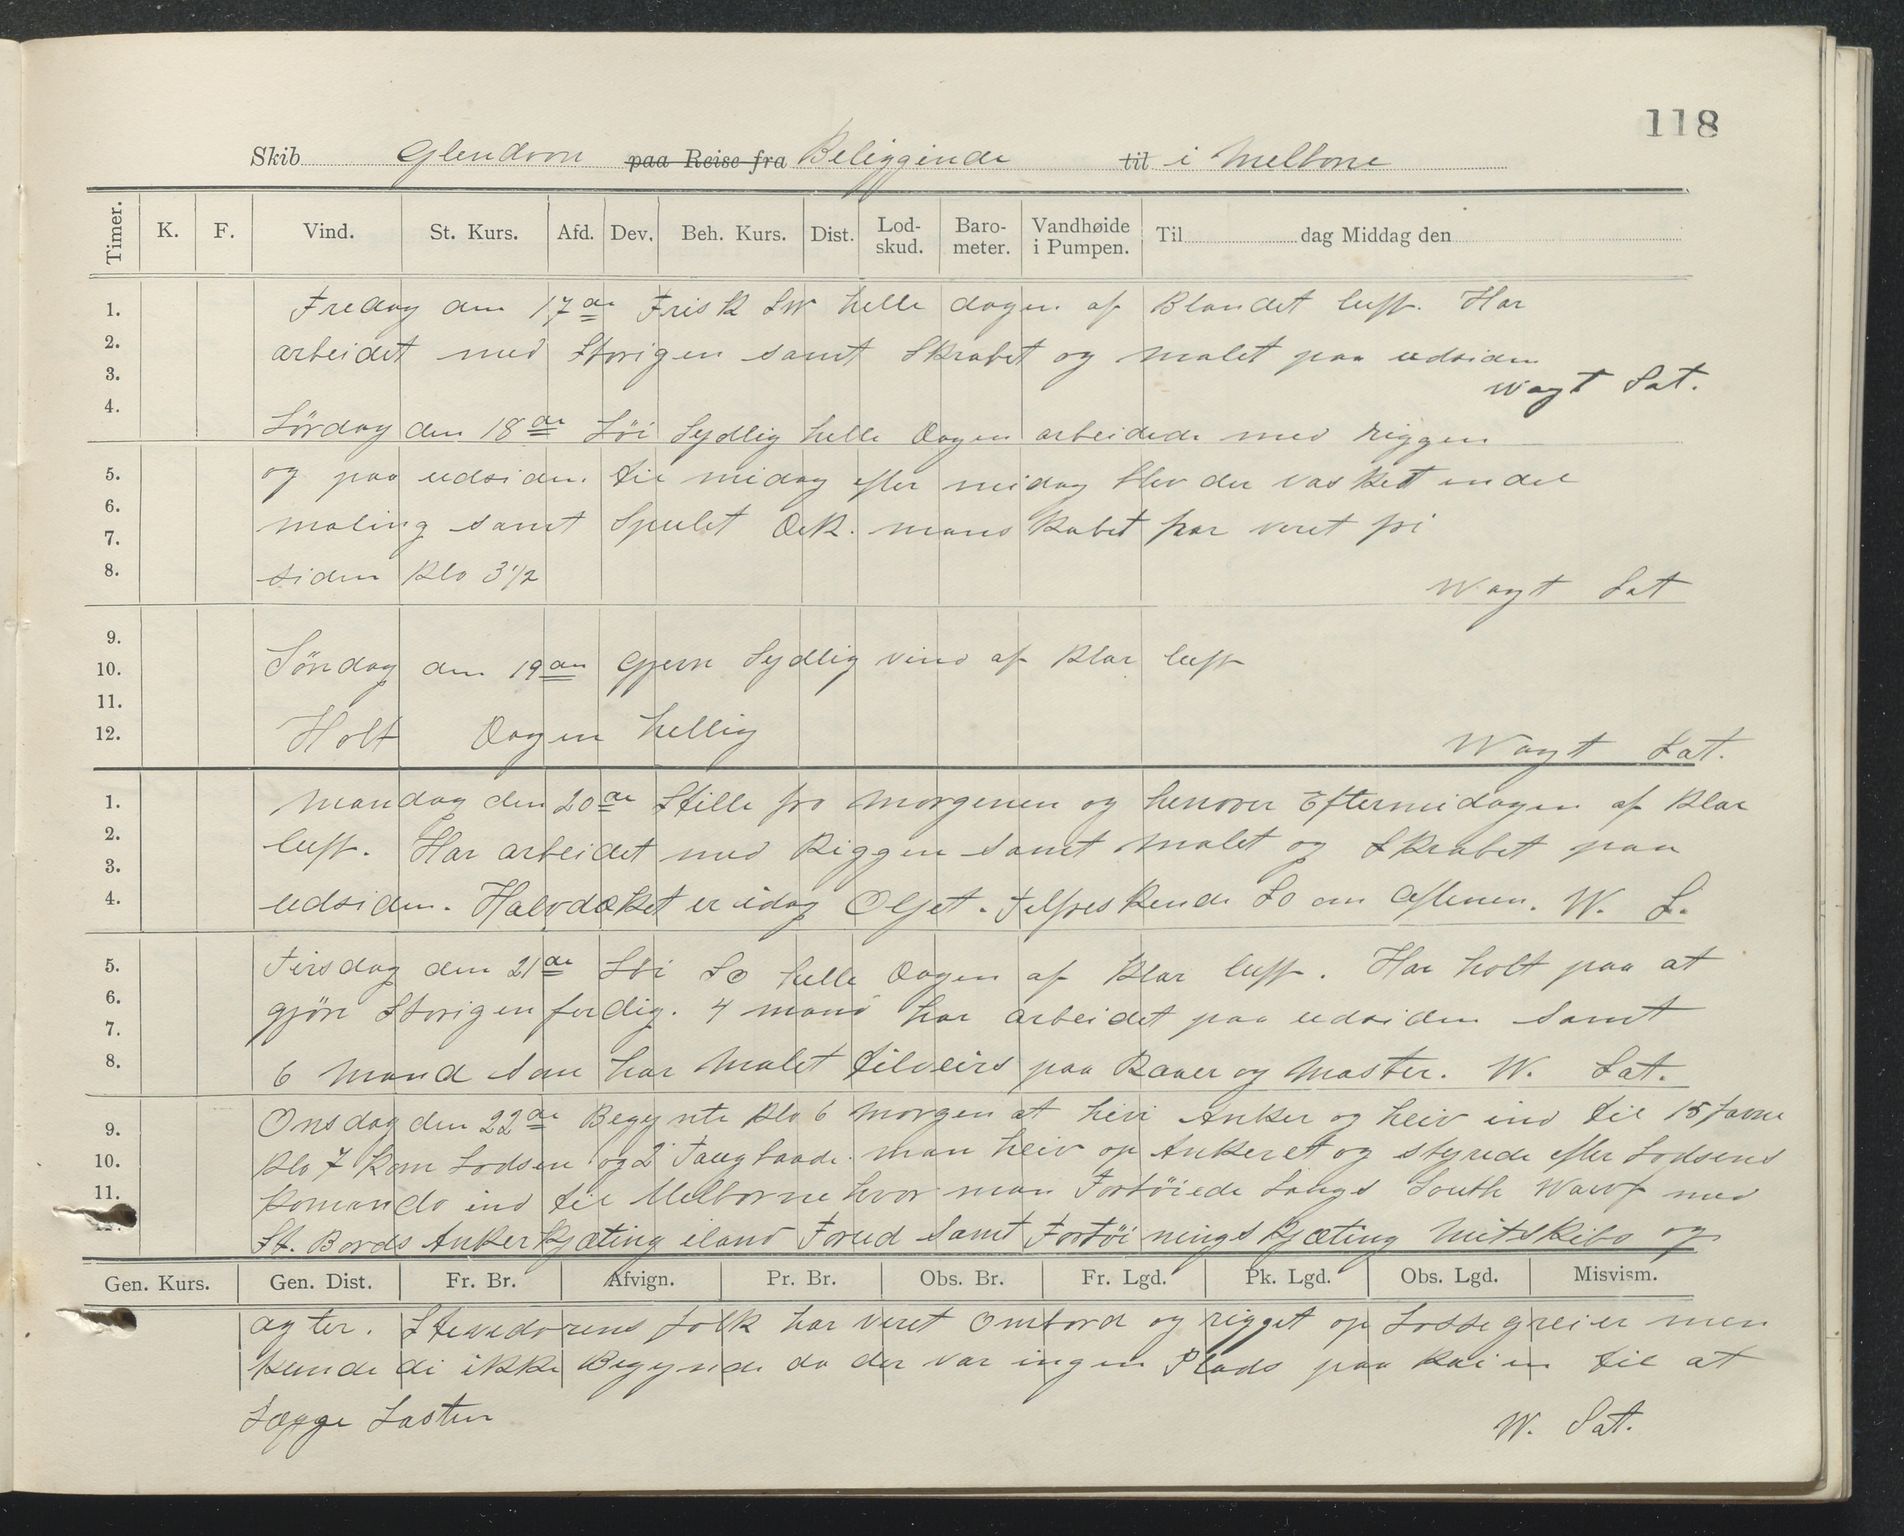 118
Skib Glendoon paa Reise fra Beliggende til i Melborne
Timer. K. F. Vind. St. Kurs. Afd. Dev. Beh. Kurs. Dist. Lod-skud. Baro-meter. Vandhøide i Pumpen. Til dag Middag den
1. Fredag den 17de Frisk SW helle dagen af Blandet luft. Har
2. arbeidet med Storigen samt Skrabet og malet paa udsiden
3. Wagt Sat.
4. Lørdag den 18de Løi Sydlig helle Dagen arbeidede med riggen
5. og paa udsiden til midag efter midag blev der vasket endel
6.
7. maling samt Spulet Dek. mandskabet har veret fri
8. siden Klo 3 1/2 Wagt Sat
9.
10. Søndag den 19den Gjevn Sydlig vind af Klar luft
11.
12. Holt Dagen hellig Wagt Sat.
1. Mandag den 20de Stille fra Morgenen og henover Eftermidagen af Klar
2. luft. Har arbeidet med Riggen samt malet og Skrabet paa
3.
4. udsiden. Halvdæket er idag Oljet. Tilfreskende SO om Aftenen. W. S.
5. Tirsdag den 21de Løi SO helle Dagen af Klar luft. Har holt paa at
6. gjöre Storigen ferdig. 4 mand har arbeidet paa udsiden samt
7.
8. 6 Mand som har Malet tilveirs paa Raaer og Master. W. Sat.
9. Onsdag den 22de Begynte Klo 6 Morgen at hive Anker og heiv ind til 15 favne
10. Klo 7 Kom Lodsen og 2 Taugbaade. man heiv op Ankeret og styrede efter Lodsens
11. Komando ind til Melborne hvor man Fortöiede Langs South Warf med
St. Bords Ankerkjæting iland Forud Samt Fortöiningskjæting Mitskibs og
Gen. Kurs. Gen. Dist. Fr. Br. Afvign. Pr. Br. Obs. Br. Fr. Lgd. Pk. Lgd. Obs. Lgd. Misvism.
agter. Stevedorens folk har veret Ombord og rigget op Lossegreier men
kunde di ikke Begynde da der var ingen Plads paa Kaien til at
Lægge Lasten W. Sat.